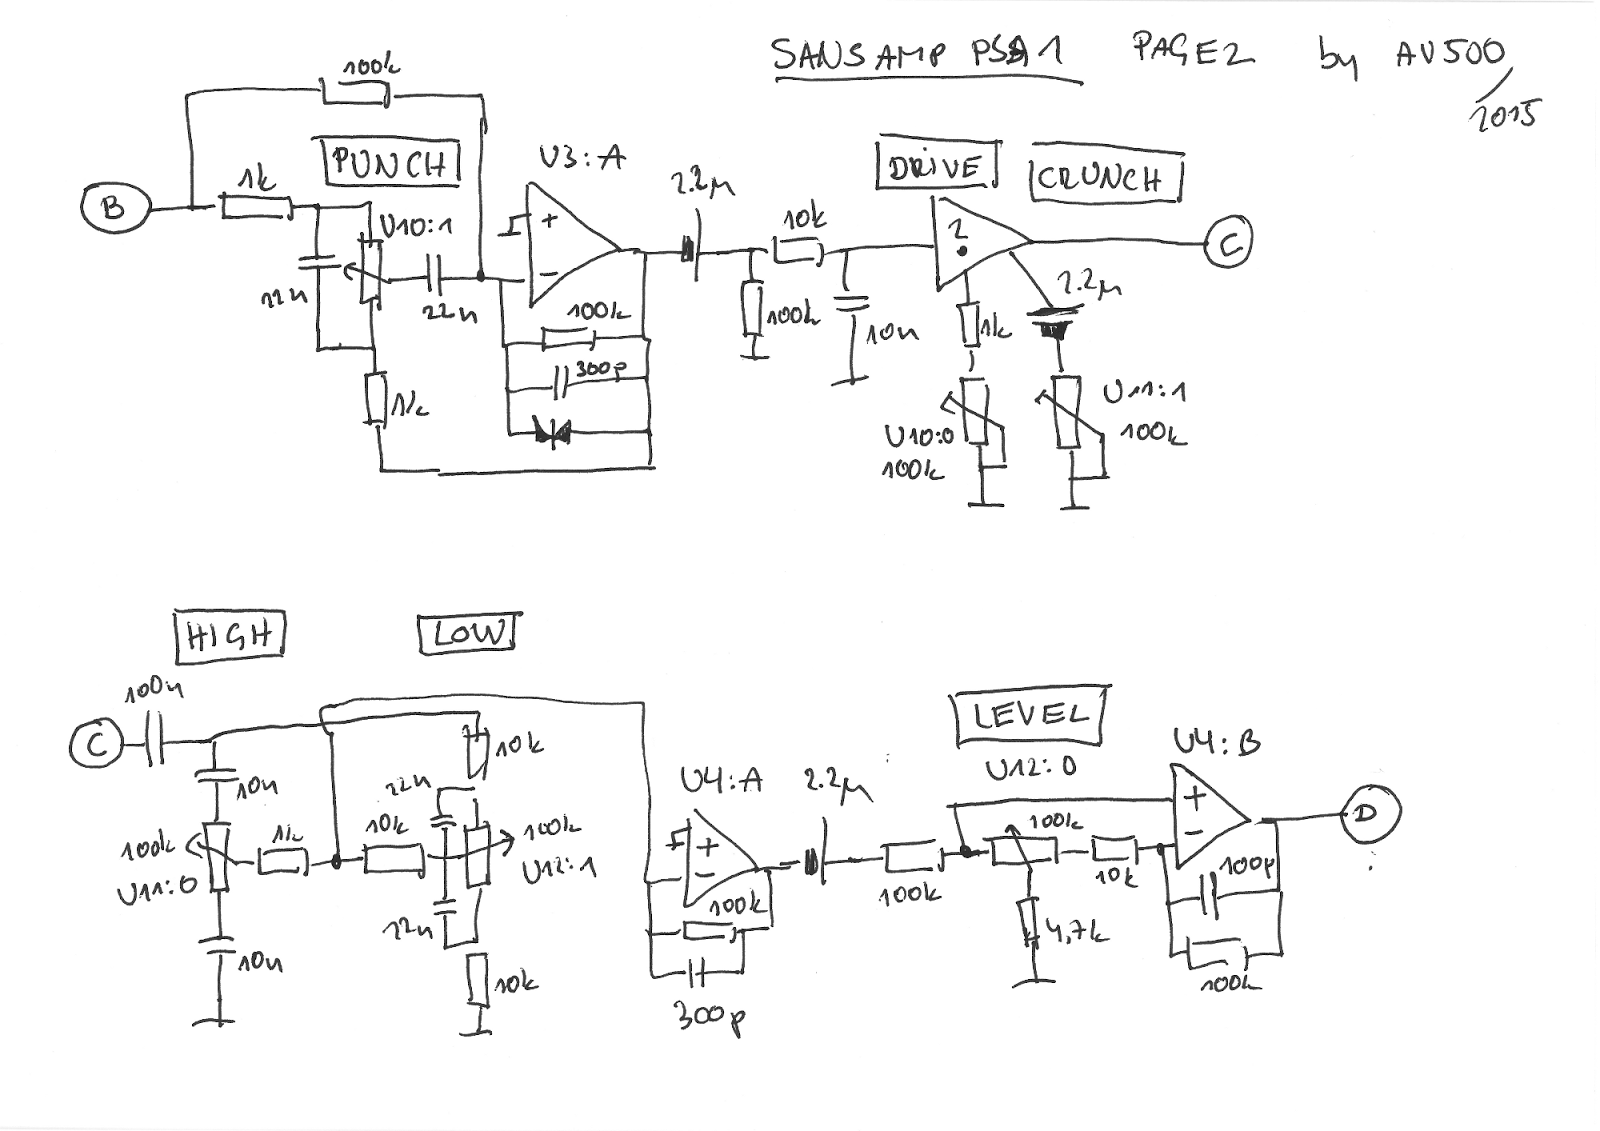 SANSAMP PSA1 PAGE2 by AV500/2015
100k
PUNCH
1k
B
U10:1
22n
22n
1k
U3:A
+
-
100k
300p
2.2µ
10k
100k
10n
DRIVE
CRUNCH
2
C
2.2µ
1k
U10:0
100k
U11:1
100k
HIGH
LOW
100n
C
10n
100k
U11:0
1k
10n
10k
10k
22n
100k
U12:1
22n
10k
U4:A
+
-
100k
300p
2.2µ
100k
LEVEL
U12:0
100k
10k
4,7k
U4:B
+
-
100p
100k
D